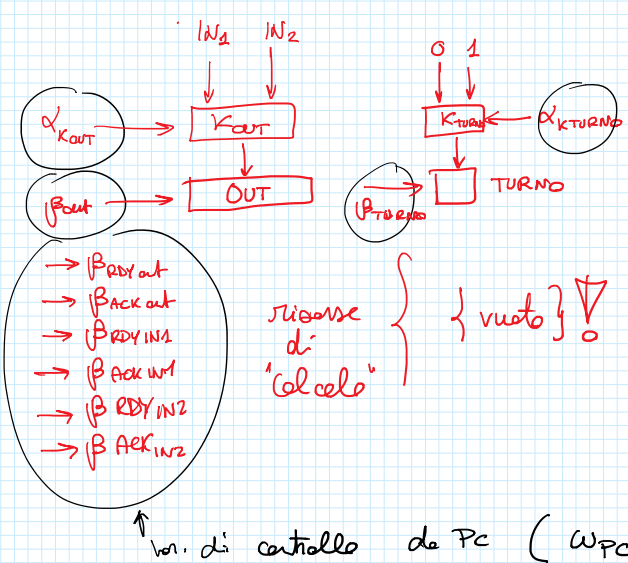 IN1 IN2
0 1
αKOUT KOUT KTURNO αKTURNO
βout OUT βTURNO TURNO
βRDYout
βACKout
βRDYIN1
βACKIN1
βRDYIN2
βACKIN2
risorse
di
"Calcolo"
{ vuoto } !
var. di controllo da PC ( ωPC